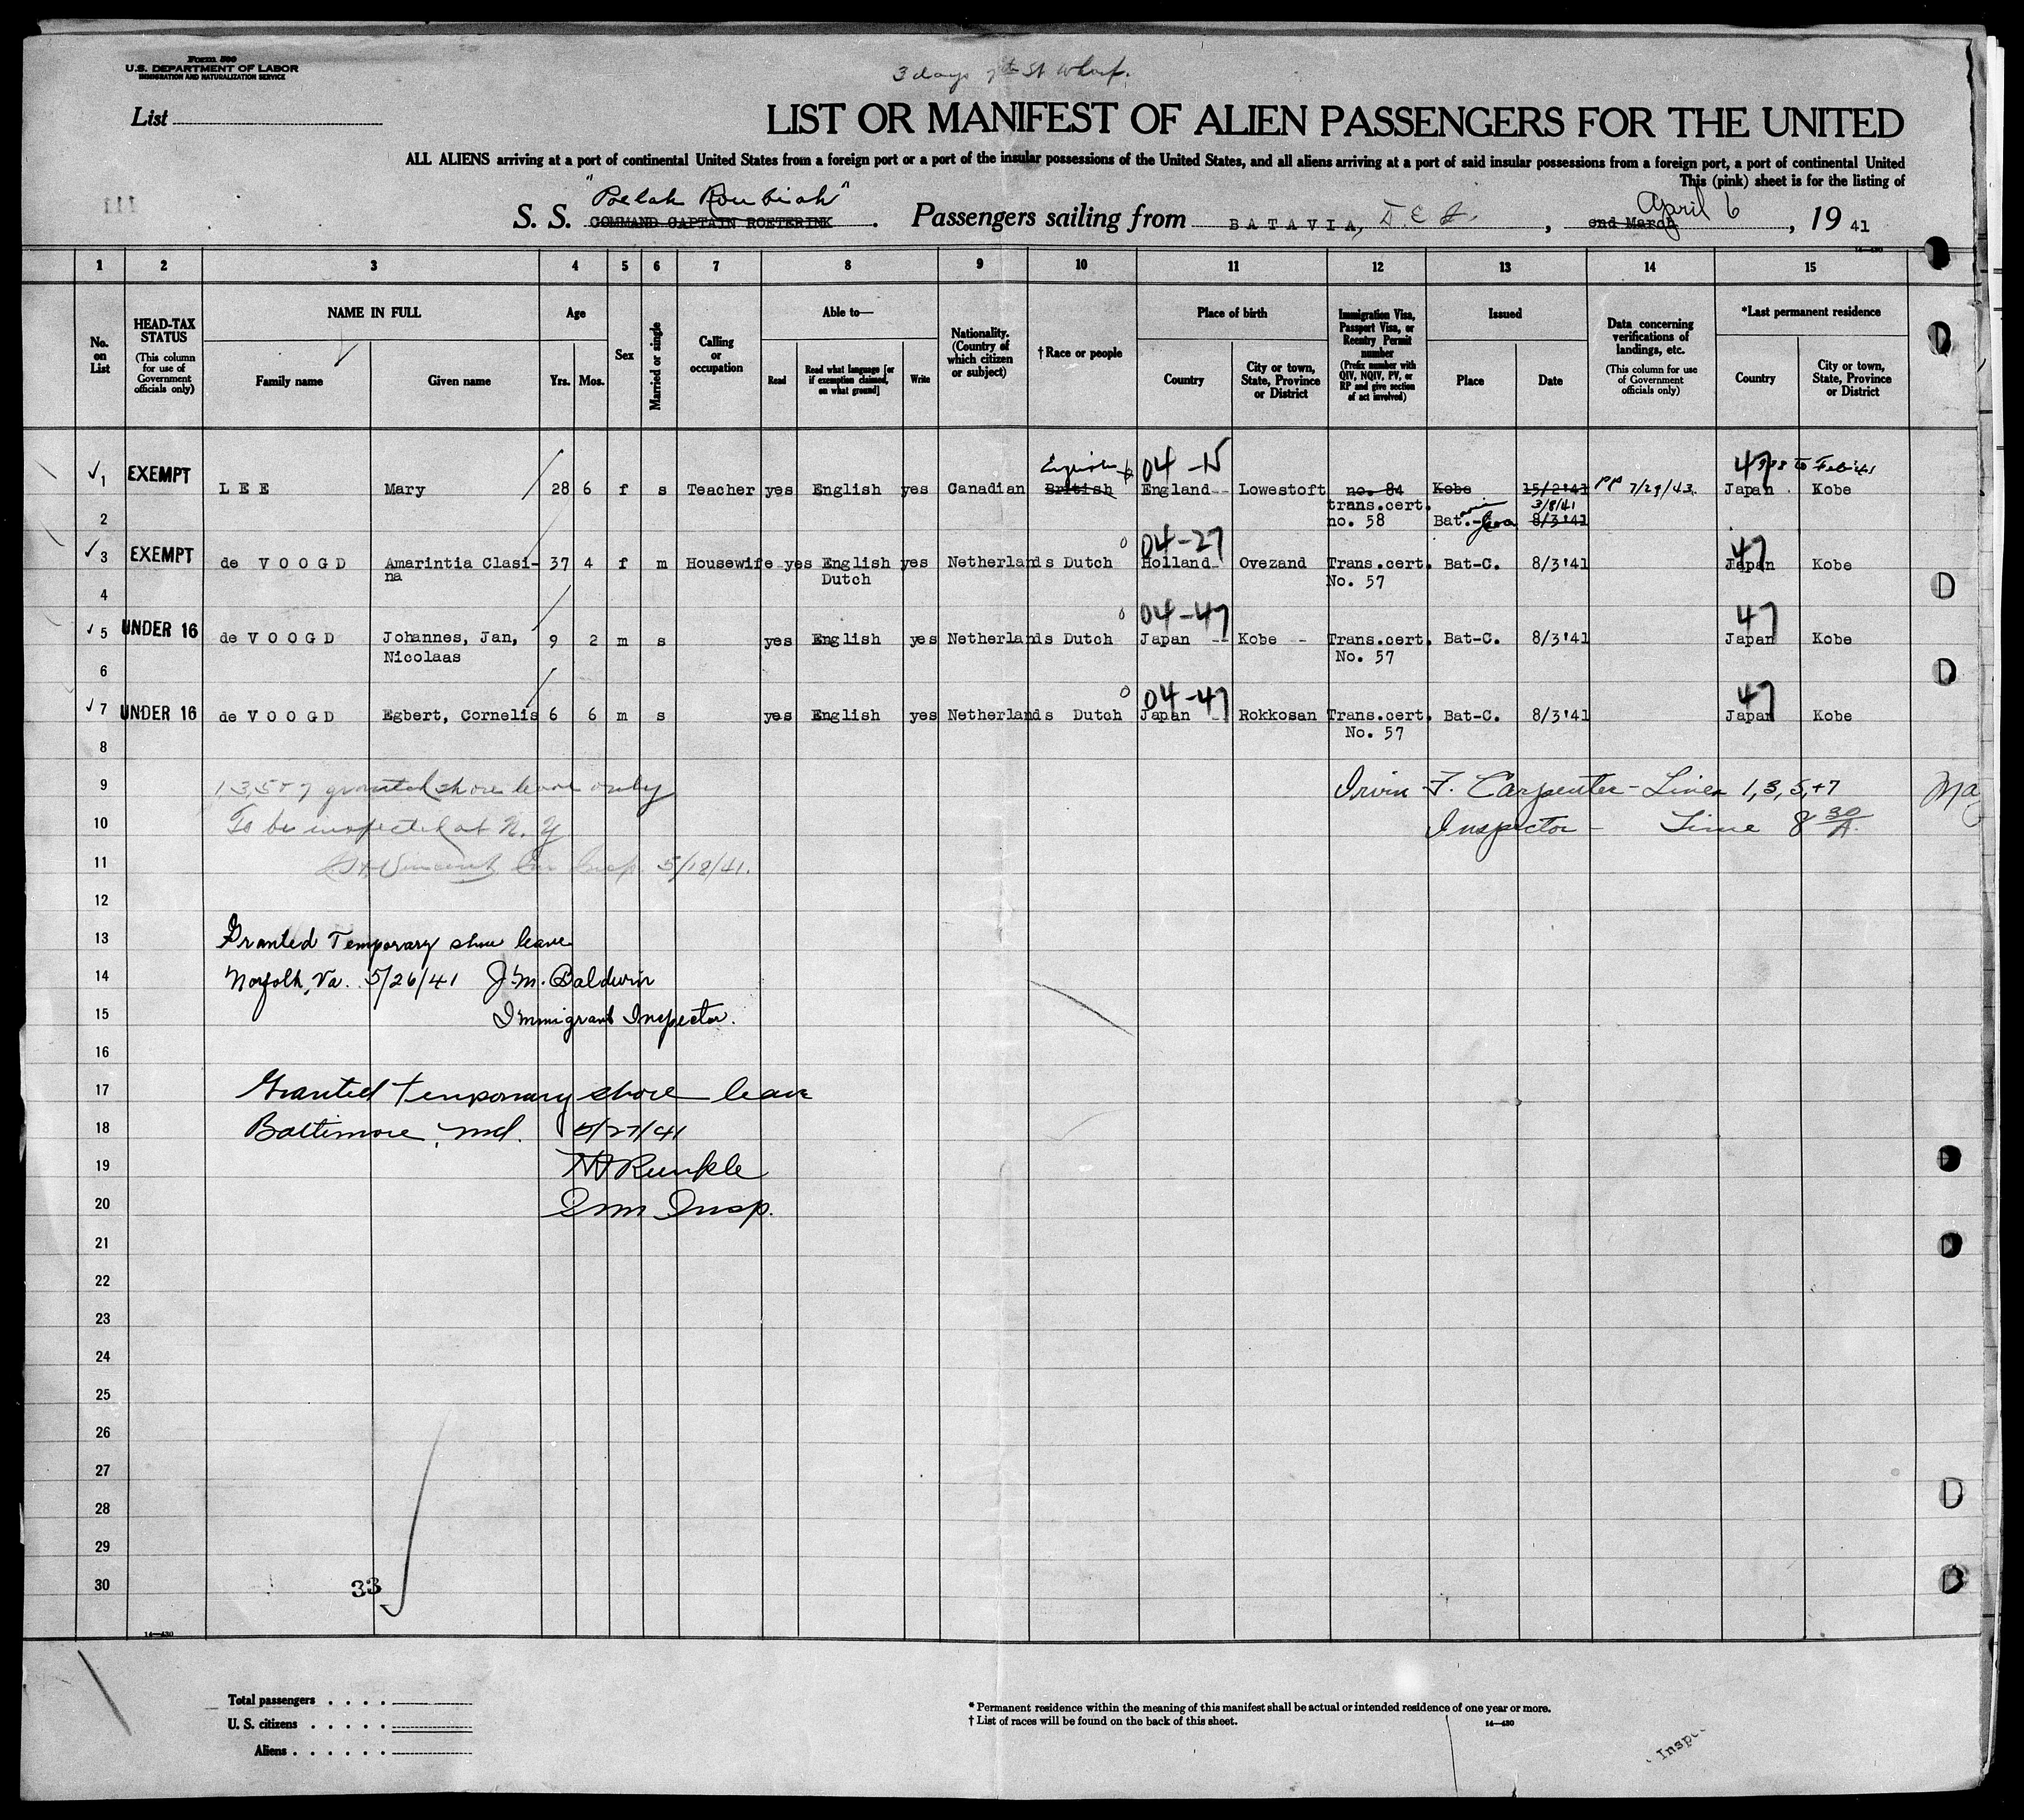 Form 500
U.S. DEPARTMENT OF LABOR
IMMIGRATION AND NATURALIZATION SERVICE
3 days 7th St Wharf.
List
LIST OR MANIFEST OF ALIEN PASSENGERS FOR THE UNITED
ALL ALIENS arriving at a port of continental United States from a foreign port or a port of the insular possessions of the United States, and all aliens arriving at a port of said insular possessions from a foreign port, a port of continental United
This (pink) sheet is for the listing of
111
"Poelah Roubiah"
S. S. COMMAND CAPTAIN ROETERINK. Passengers sailing from BATAVIA, D. E. I., April 6 2nd March, 19 41
14-430
1 2 3 4 5 6 7 8 9 10 11 12 13 14 15
No. on List
HEAD-TAX STATUS (This column for use of Government officials only)
NAME IN FULL
Family name
Given name
Age
Yrs. Mos.
Sex
Married or single
Calling or occupation
Able to—
Read
Read what language [or if exemption claimed, on what ground]
Write
Nationality. (Country of which citizen or subject)
†Race or people
Place of birth
Country
City or town, State, Province or District
Immigration Visa, Passport Visa, or Reentry Permit number (Prefix number with QIV, NQIV, PV, or RP and give section of act involved)
Issued
Place
Date
Data concerning verifications of landings, etc. (This column for use of Government officials only)
*Last permanent residence
Country
City or town, State, Province or District
English 04-15 47 to Feb '41
1 EXEMPT LEE Mary 28 6 f s Teacher yes English yes Canadian British England Lowestoft no. 84 Kobe 15/2'41 PP 7/29/43 Japan Kobe
trans.cert. 3/8/41
2 no. 58 Bat.-C 8/3'41
04-27 47
3 EXEMPT de VOOGD Amarintia Clasi- 37 4 f m Housewife yes English yes Netherlands Dutch Holland Ovezand Trans.cert. Bat-C. 8/3'41 Japan Kobe
na Dutch No. 57
4
04-47 47
5 UNDER 16 de VOOGD Johannes, Jan, 9 2 m s yes English yes Netherlands Dutch Japan Kobe Trans.cert. Bat-C. 8/3'41 Japan Kobe
Nicolaas No. 57
6
04-47 47
7 UNDER 16 de VOOGD Egbert, Cornelis 6 6 m s yes English yes Netherlands Dutch Japan Rokkosan Trans.cert. Bat-C. 8/3'41 Japan Kobe
No. 57
8
9 1,3,5+7 granted shore leave only Irvin F. Carpenter - Lines 1,3,5,+7 Ma
10 To be inspected at N. Y Inspector - Time 8 30/A.
11 Vincent Imm Insp. 5/18/41.
12
13 Granted Temporary shore leave
14 Norfolk, Va. 5/26/41 J.M. Baldwin
15 Immigrant Inspector.
16
17 Granted temporary shore leave
18 Baltimore, Md. 5/27/41
19 Runkle
20 Imm Insp.
21
22
23
24
25
26
27
28
29
30 33
14-430
Total passengers
U. S. citizens
Aliens
* Permanent residence within the meaning of this manifest shall be actual or intended residence of one year or more.
† List of races will be found on the back of this sheet.
14-430
Inspe